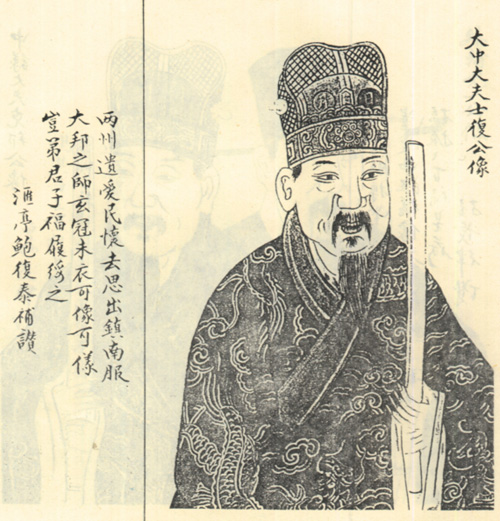 大中大夫士復公像
两州遺愛民懷去思出鎮南服
大邦之師玄冠朱衣可像可樣
豈弟君子福履綏之
滙亭鮑復泰補讚